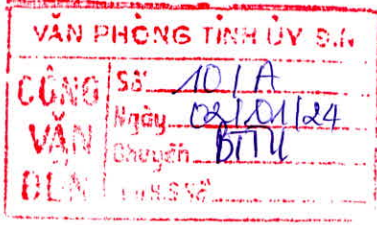 VĂN PHÒNG TỈNH ỦY S.L
CÔNG VĂN ĐẾN
Số 10/A
Ngày 02/01/24
Chuyển BTTU